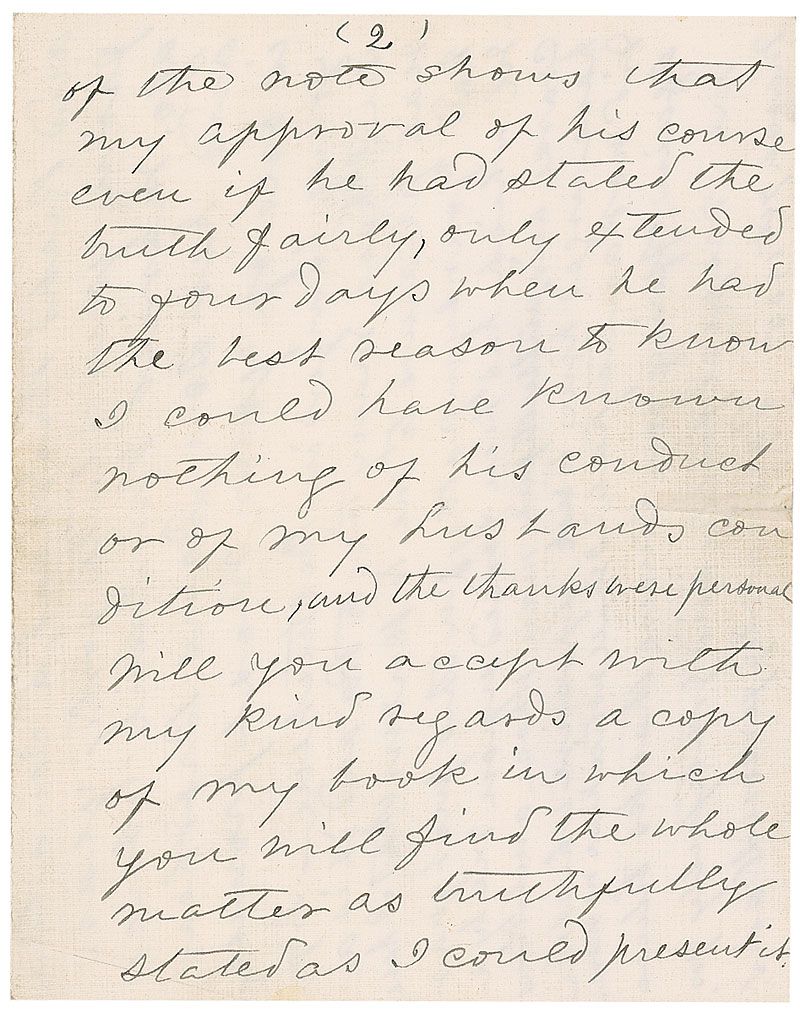 (2)
of the note shows that
my approval of his course
even if he had stated the
truth fairly, only extended
to four days when he had
the best reason to know
I could have known
nothing of his conduct
or of my husbands con
dition, and the thanks were personal
Will you accept with
my kind regards a copy
of my book in which
you will find the whole
matter as truthfully
stated as I could present it.